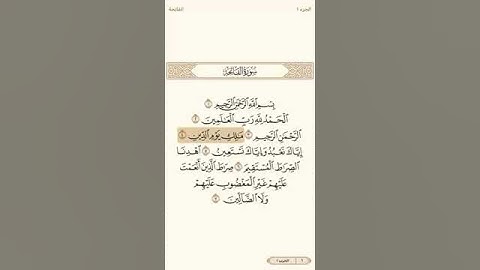 الفاتحة الجزء ١
سُورَةُ الفَاتِحَةِ
بِسْمِ ٱللَّهِ ٱلرَّحْمَٰنِ ٱلرَّحِيمِ ١
ٱلْحَمْدُ لِلَّهِ رَبِّ ٱلْعَٰلَمِينَ ٢
ٱلرَّحْمَٰنِ ٱلرَّحِيمِ ٣ مَٰلِكِ يَوْمِ ٱلدِّينِ ٤
إِيَّاكَ نَعْبُدُ وَإِيَّاكَ نَسْتَعِينُ ٥ ٱهْدِنَا
ٱلصِّرَٰطَ ٱلْمُسْتَقِيمَ ٦ صِرَٰطَ ٱلَّذِينَ أَنْعَمْتَ
عَلَيْهِمْ غَيْرِ ٱلْمَغْضُوبِ عَلَيْهِمْ
وَلَا ٱلضَّآلِّينَ ٧
١